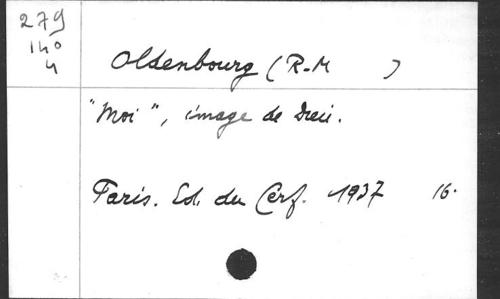 279
140
4
Oldenbourg (R-M )
"Moi", image de Dieu.
Paris. Ed. du Cerf. 1937 16.